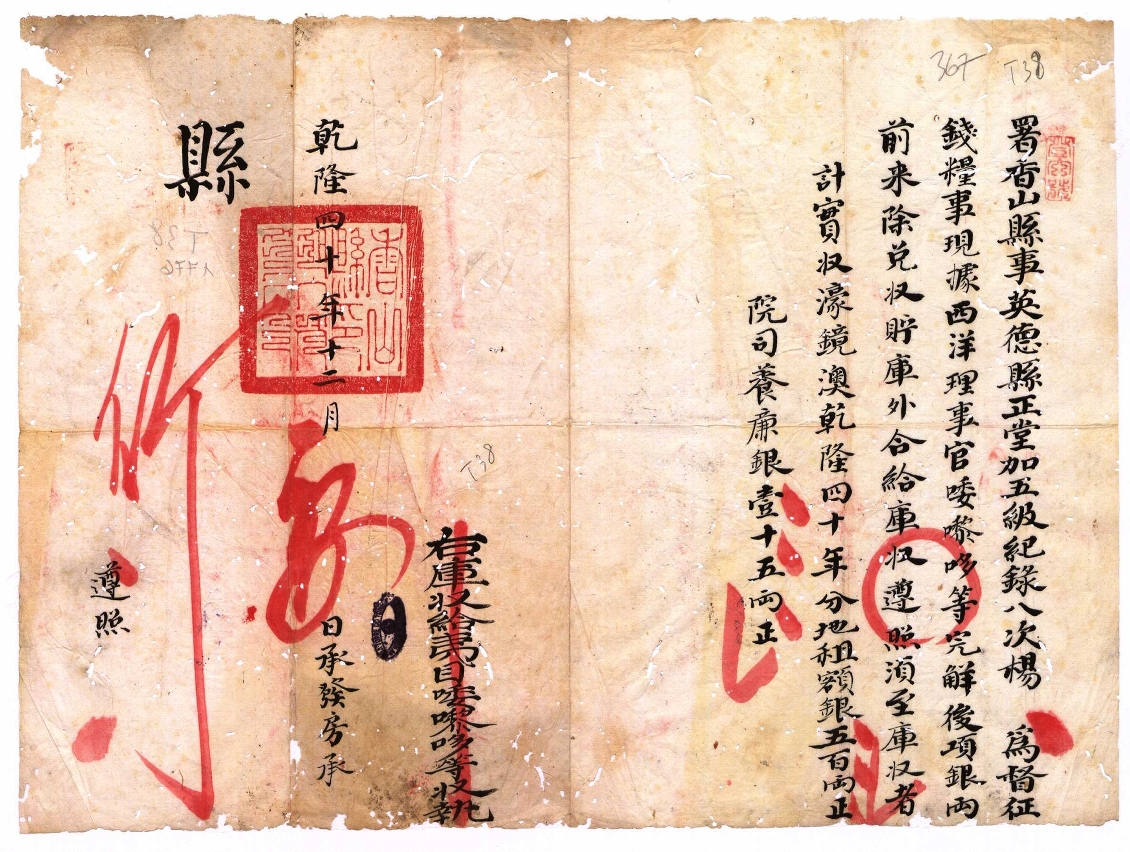 367 T38
署香山縣事英德縣正堂加五級紀錄八次楊 爲督征
錢糧事現據西洋理事官喽嚟哆等完觧後項銀両
前来除兑収貯庫外合給庫収遵照湏至庫収者
計實収濠鏡澳乾隆四十年分地租額銀五百両正
院司養廉銀壹十五両正
T38
右庫収給夷目喽嚟哆等収執
乾隆四十年十二月 日承發房承
香山縣印
縣
T38
1776
遵照